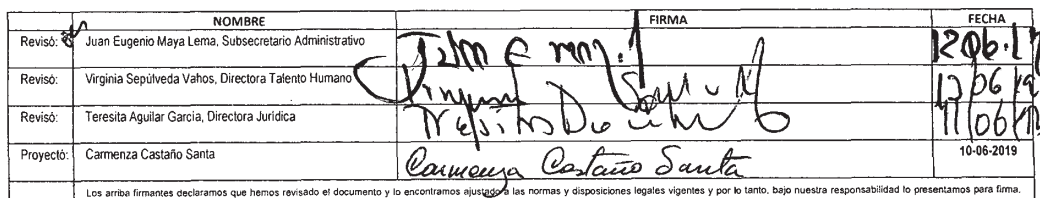 NOMBRE FIRMA FECHA
Revisó: Juan Eugenio Maya Lema, Subsecretario Administrativo
Revisó: Virginia Sepúlveda Vahos, Directora Talento Humano 12/06/19
Revisó: Teresita Aguilar García, Directora Jurídica 11/06/19
Proyectó: Carmenza Castaño Santa Carmenza Castaño Santa 10-06-2019
Los arriba firmantes declaramos que hemos revisado el documento y lo encontramos ajustado a las normas y disposiciones legales vigentes y por lo tanto, bajo nuestra responsabilidad lo presentamos para firma.